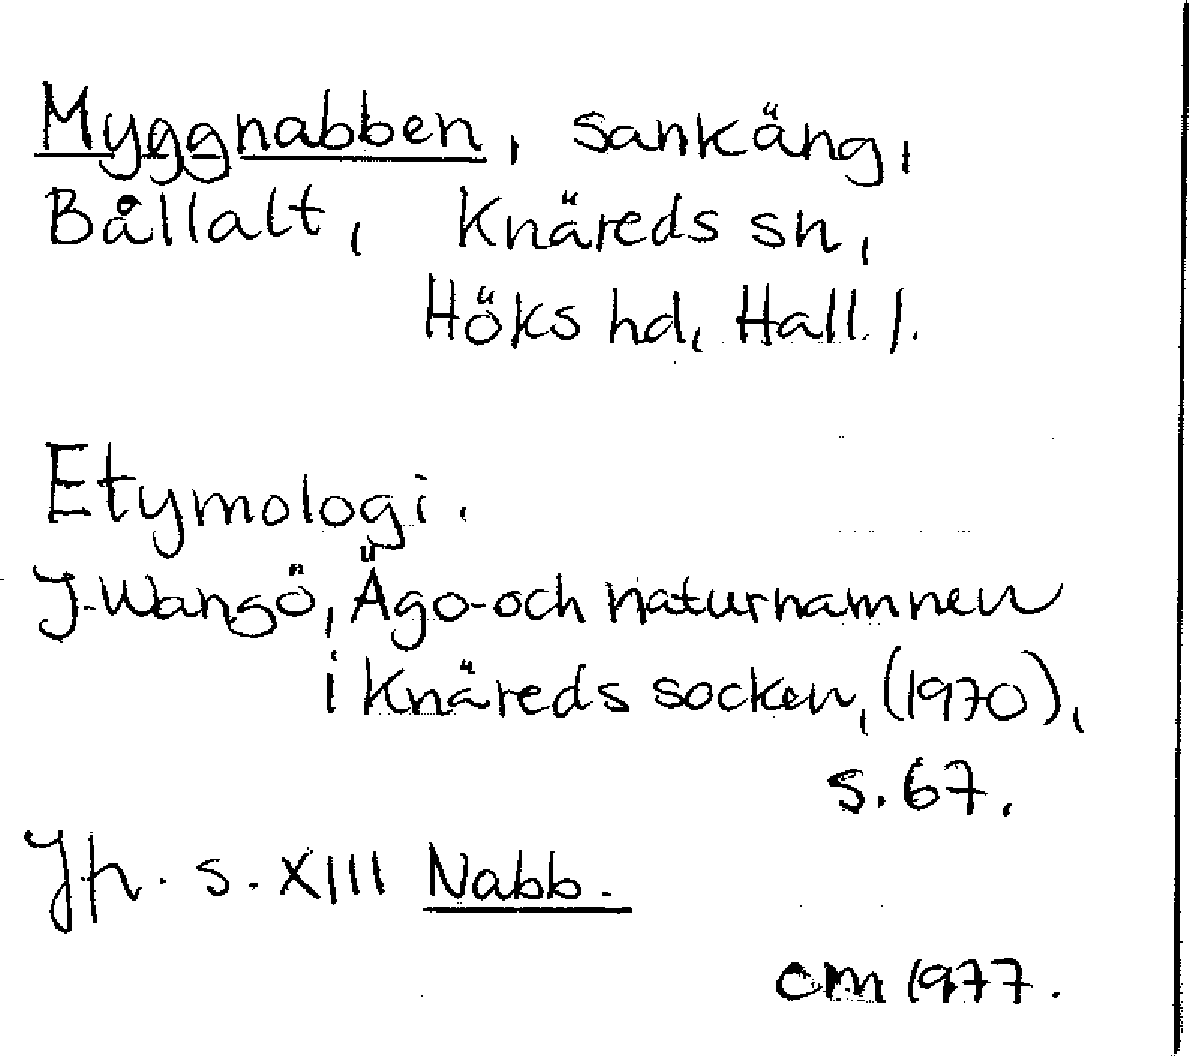 Myggnabben, sankäng,
Bållalt, Knäreds sn,
Höks hd, Hall. l.
Etymologi.
J. Wangö, Ägo- och naturnamnen
i Knäreds socken, (1970),
s. 67.
Jfr. s. XIII Nabb.
CM 1977.